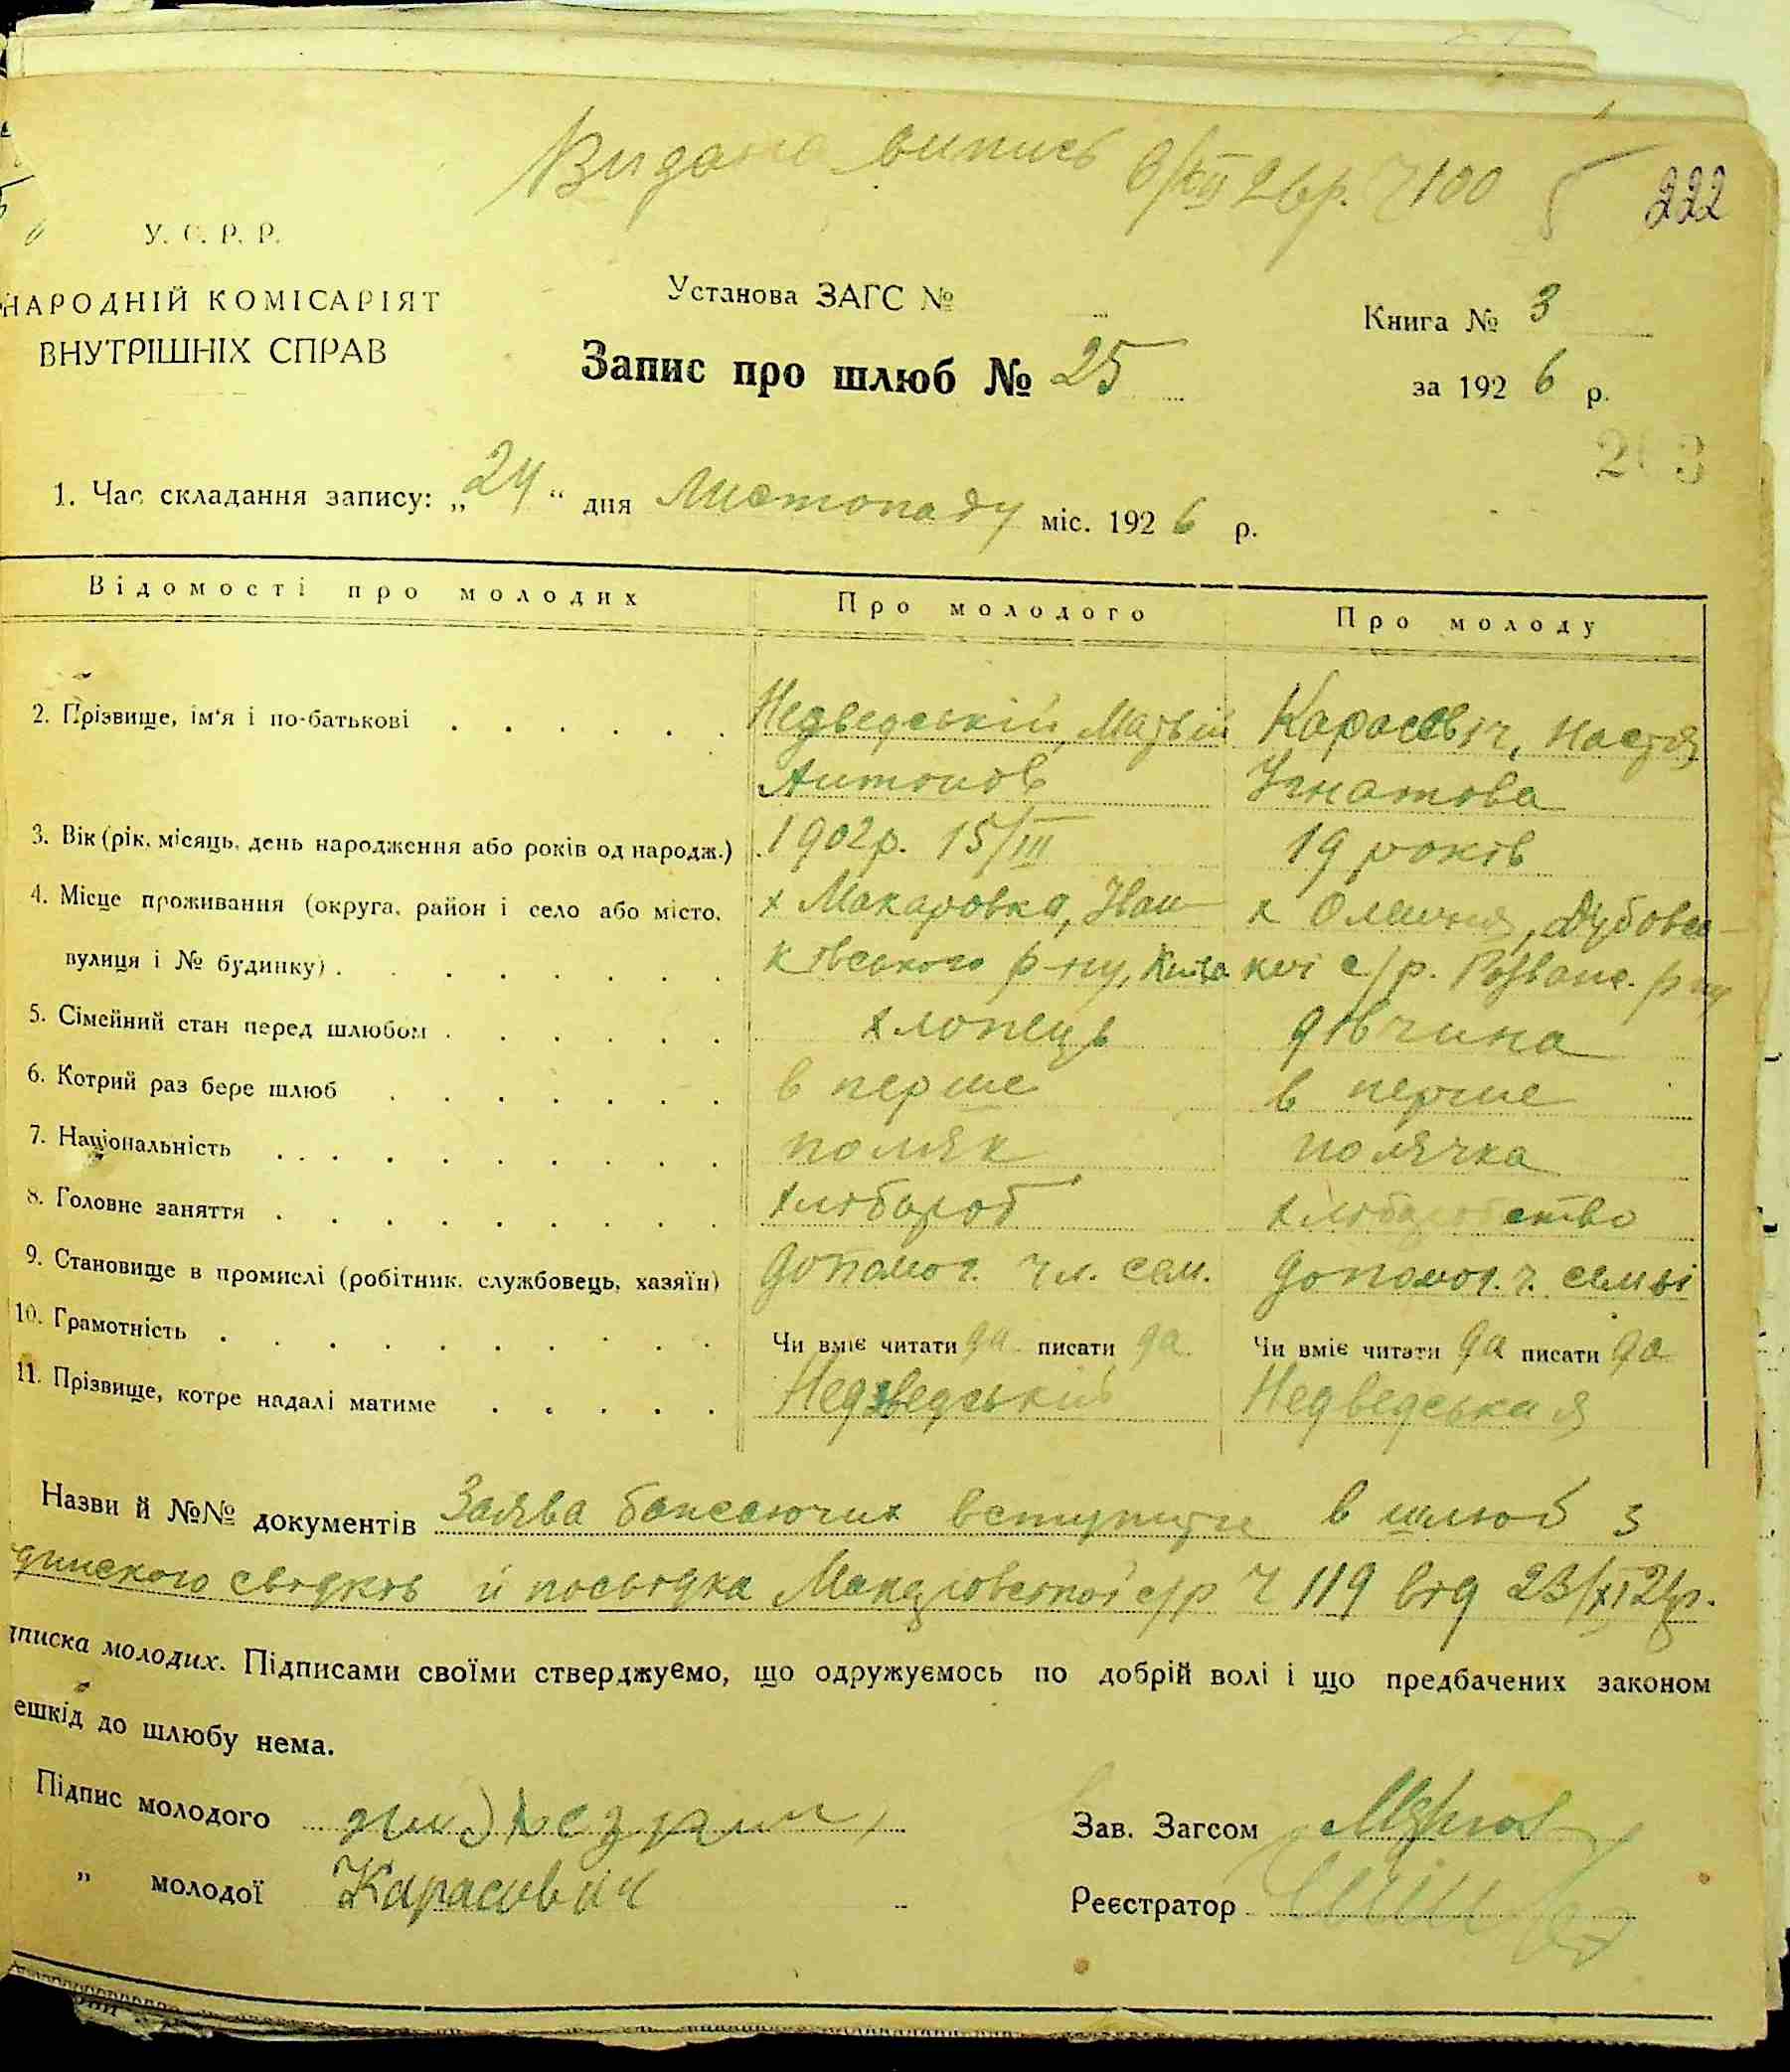 Видана випись 6/XII 26р. Ч 100
222
У. С. Р. Р.
НАРОДНІЙ КОМІСАРІЯТ
ВНУТРІШНІХ СПРАВ
Установа ЗАГС №
Запис про шлюб № 25
Книга № 3
за 1926 р.
1. Час складання запису: „24“ дня Листопаду міс. 1926 р.
Відомості про молодих Про молодого Про молоду
2. Прізвище, ім'я і по-батькові Недведській, Матвій Карасевіч, Настя
Антонов Ігнатова
3. Вік (рік, місяць, день народження або років од народж.) 1902р. 15/III 19 років
4. Місце проживання (округа, район і село або місто, х Макаровка, Іван- х Олешня, Дубовс-
вулиця і № будинку) ківського р-ну, кої с/р. Розваж. р-ну
5. Сімейний стан перед шлюбом хлопець дівчина
6. Котрий раз бере шлюб в перше в перше
7. Національність поляк полячка
8. Головне заняття хлібороб хліборобство
9. Становище в промислі (робітник, службовець, хазяїн) допомог. чл. сем. допомог. ч. семьі
10. Грамотність Чи вміє читати да писати да Чи вміє читати да писати да
11. Прізвище, котре надалі матиме Недведській Недведськая
Назви й №№ документів Заява бажаючих вступити в шлюб з
свідків й посвідка Макаровської с/р Ч 119 від 23/XI 26р.
писка молодих. Підписами своїми стверджуємо, що одружуємось по добрій волі і що предбачених законом
ешкід до шлюбу нема.
Підпис молодого
„ молодої Карасивич
Зав. Загсом
Реєстратор